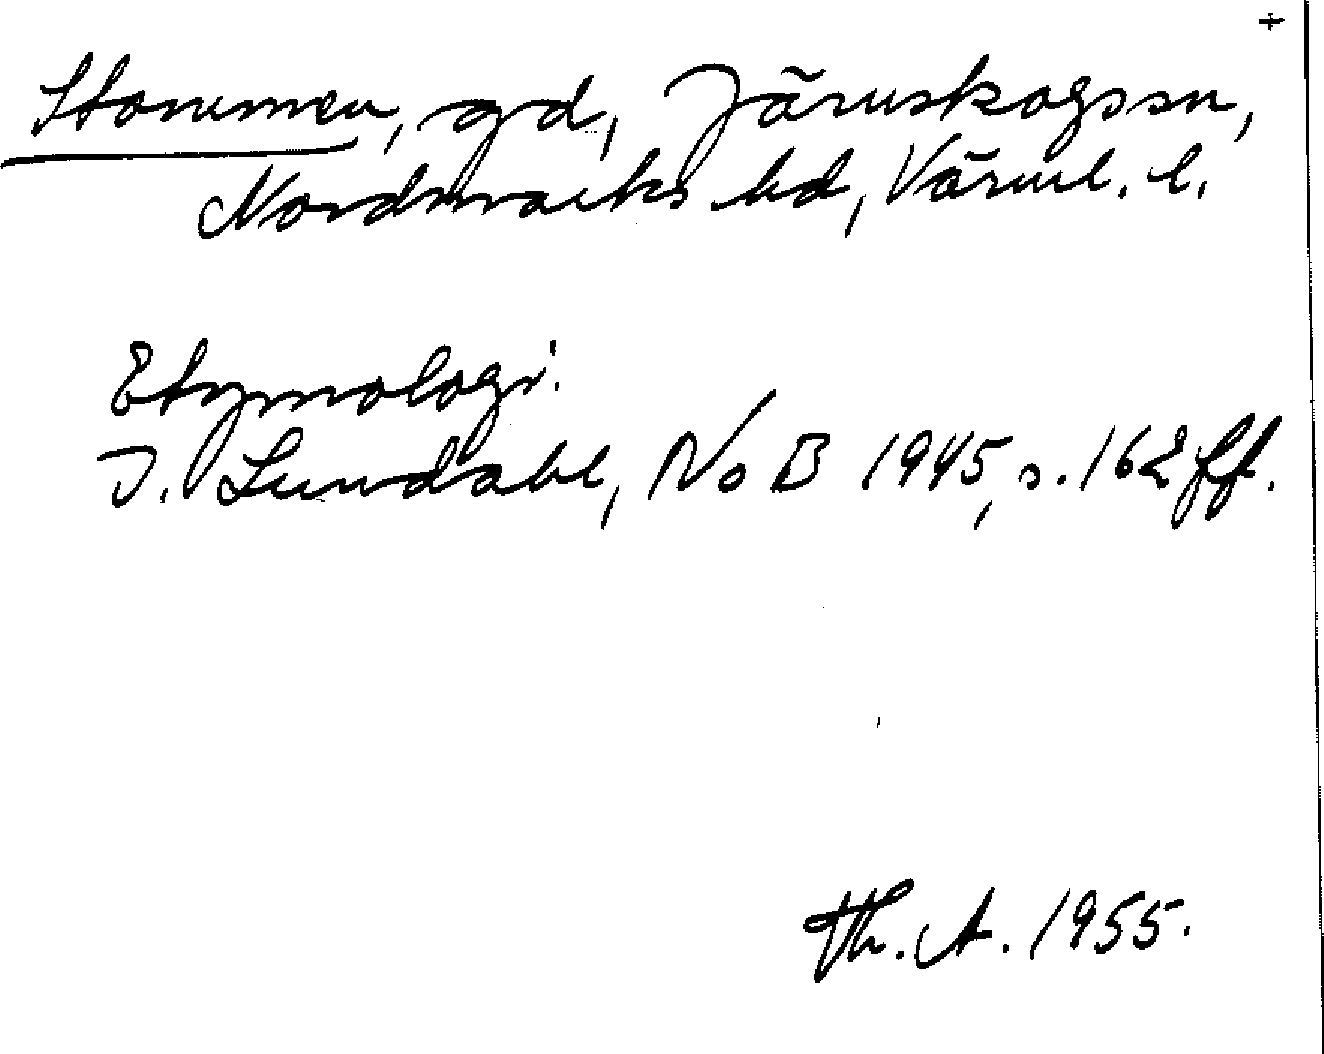 +
Stommen, gd, Järnskogssn,
Nordmarks hd, Värml. l.
Etymologi.
I. Lundahl, No B 1945, s. 162 ff.
Th. A. 1955.